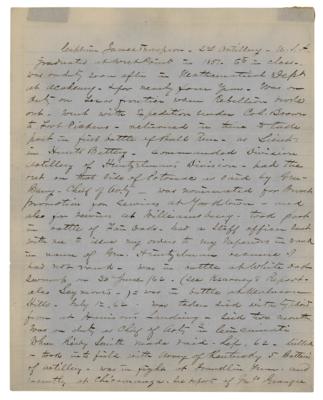 Captain James Thompson - 2d Artillery - U.S.A.
Graduated at West Point in 1851. 6th in class.
was on duty soon after in Mathematical Dept
at Academy - & for nearly four years. Was on
duty on Texas frontier when Rebellion broke
out - Went with Expedition under Col. Brown
to Fort Pickens - returned in time to take
part in first battle of Bull Run - as Lieut-
in Hunt's Battery - Commanded Division
Artillery of Heintzelman's Division - had the
on that side of Potomac is said by Gen-
Barry - Chief of Arty - was nominated for Brevet
promotion for services at Yorktown - and
also for services at Williamsburg - took part
in battle of Fair Oaks - but a staff officer sent
with me to issue my orders to my Superiors in rank
in name of Gen. Heintzelman because I
had not rank - was in battle at White Oak
Swamp on 30 June /62 - (See Kearney's Report -
also Seymour's) was in battle at Malvern
Hills - July 12, 62 - was taken sick with
from at Harrison's Landing - Sick two month
Was on duty as Chief of Arty in Cincinnati
When Kirby Smith made raid - Sep. 62 -
- took into field with Army of Kentucky 5 Batteries
of artillery - was in fight at Franklin Tenn - and
recently at Chicamauga - see report of Genl Granger